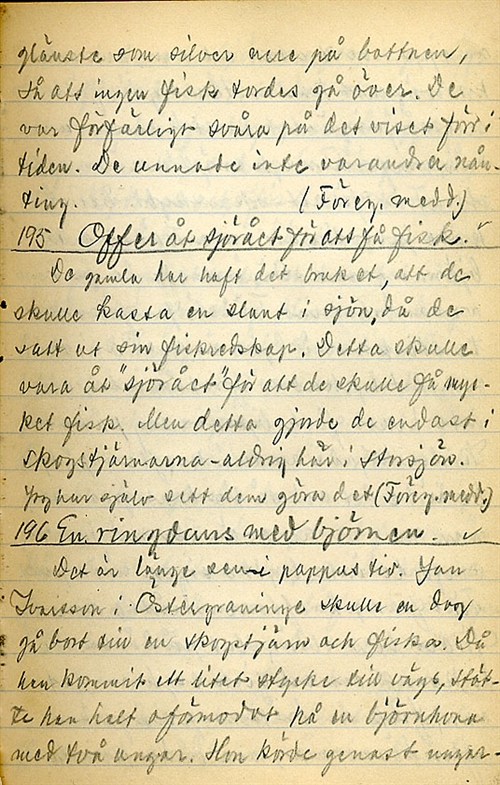 glänste som silver nere på bottnen,
så att ingen fisk tordes gå över. De
var förfärligt svåra på det viset förr i
tiden. De unnade inte varandra nån-
ting. (Föreg. medd.)
195 Offer åt sjörået för att få fisk.
De gamla har haft det bruket, att de
skulle kasta en slant i sjön, då de
satt ut sin fiskredskap. Detta skulle
vara åt "sjörået" för att de skulle få myc-
ket fisk. Men detta gjorde de endast i
skogstjärnarna - aldrig här i Storsjön.
Jag har själv sett dem göra det (Föreg. medd.)
196 En ringdans med björnen.
Det är länge sen i pappas tid. Jan
Ivarsson i Östergraninge skulle en dag
gå bort till en skogstjärn och fiska. Då
han kommit ett litet stycke till vägs, stöt-
te han helt oförmodat på en björnhona
med två ungar. Hon körde genast ungar-